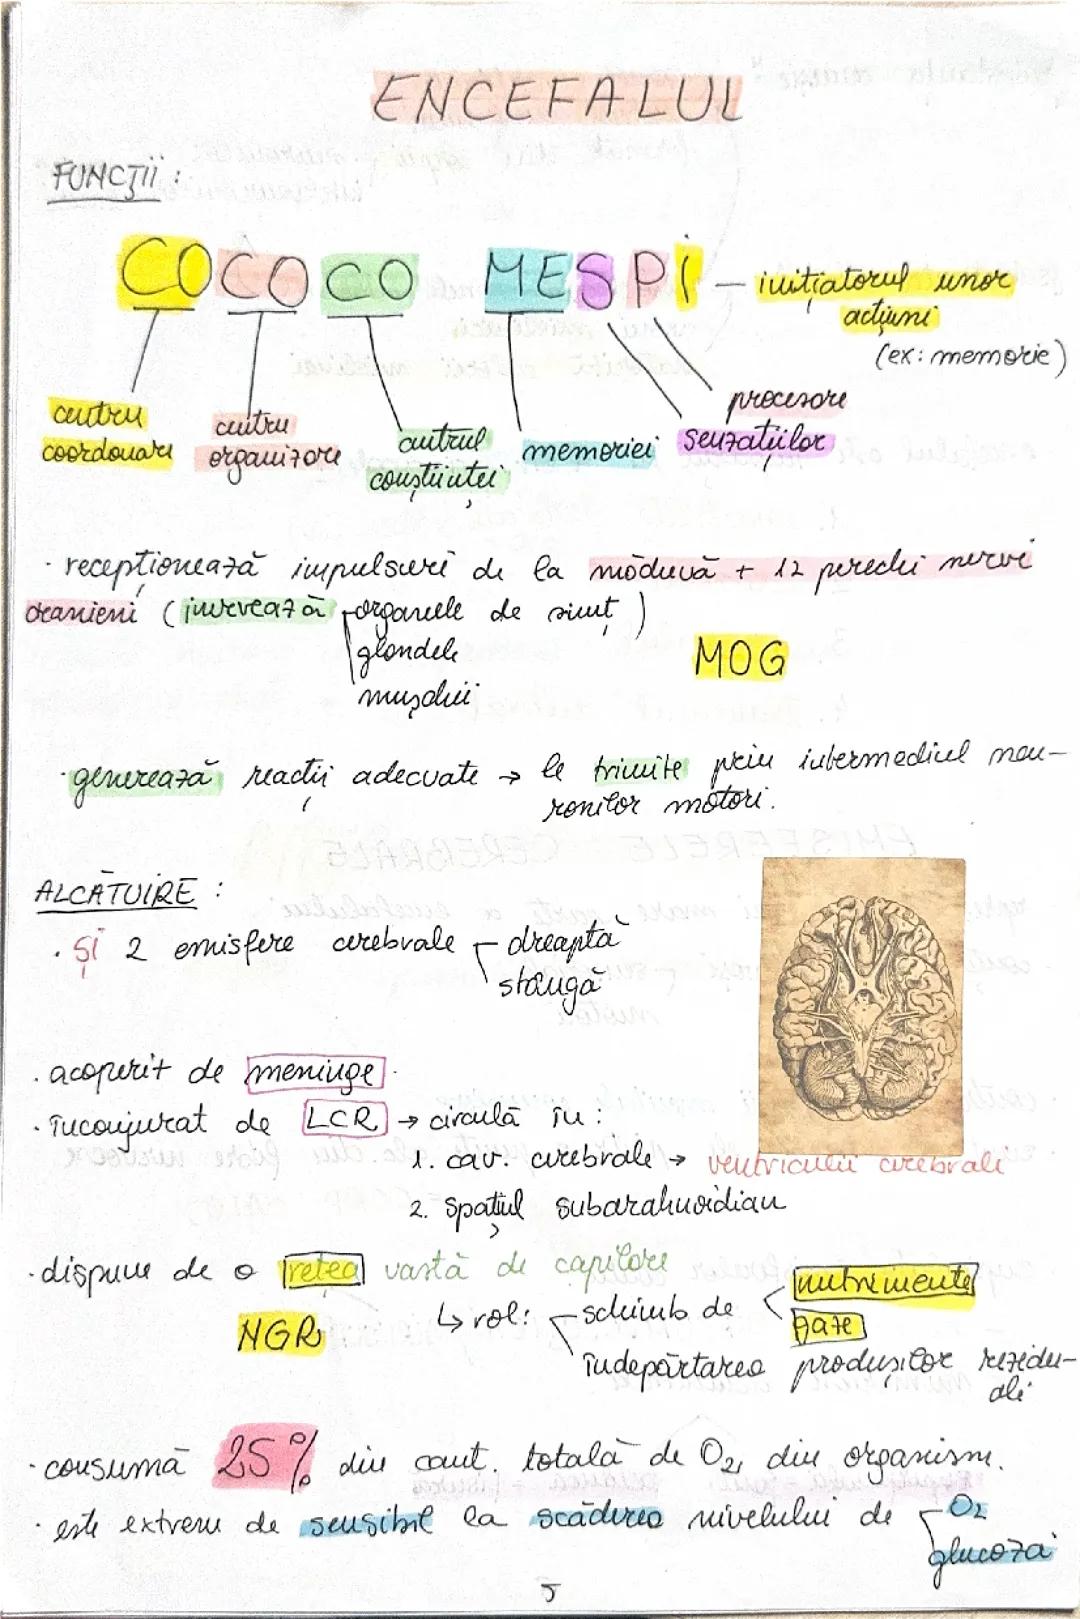 ENCEFALUL
FUNCȚII :
CO CO CO MESPI — inițiatorul unor
acțiuni
(ex: memorie)
centru
coordonare
centru
organizare
centrul
conștiinței
memoriei
procesare
senzațiilor
· recepționează impulsuri de la măduvă + 12 perechi nervi
cranieni (inervează organele de simț)
glandele
mușchii
MOG
· generează reacții adecvate → le trimite prin intermediul neu-
ronilor motori.
ALCĂTUIRE :
· și 2 emisfere cerebrale dreaptă
stângă
· acoperit de meninge.
· înconjurat de LCR → circulă în :
1. cav. cerebrale → ventriculii cerebrali
2. spațiul subarahnoidian
· dispune de o rețea vastă de capilare
↳ rol: schimb de nutrimente
gaze
NGR
îndepărtarea produșilor rezidu-
ali
· consumă 25% din cant. totală de O2, din organism.
· este extrem de sensibil la scăderea nivelului de O2
glucoză
5